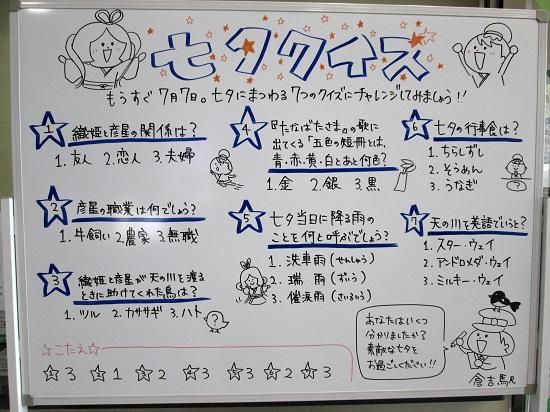 七夕クイズ
もうすぐ7月7日。七夕にまつわる7つのクイズにチャレンジしてみましょう!!
1 織姫と彦星の関係は?
1.友人 2.恋人 3.夫婦
2 彦星の職業は何でしょう?
1.牛飼い 2.農家 3.無職
3 織姫と彦星が天の川を渡る
ときに助けてくれた鳥は?
1.ツル 2.カササギ 3.ハト
4 『たなばたさま』の歌に
出てくる「五色の短冊」とは、
青・赤・黄・白とあと何色?
1.金 2.銀 3.黒
5 七夕当日に降る雨の
ことを何と呼ぶでしょう?
1.洗車雨(せんしゃう)
2.瑞雨(ずいう)
3.催涙雨(さいるいう)
6 七夕の行事食は?
1.ちらしずし
2.そうめん
3.うなぎ
?
7 天の川を英語でいうと?
1.スター・ウェイ
2.アンドロメダ・ウェイ
3.ミルキー・ウェイ
☆こたえ☆
☆3 ☆1 ☆2 ☆3 ☆3 ☆2 ☆3
あなたはいくつ
分かりましたか?
素敵な七夕を
お過ごしください!!
倉吉駅